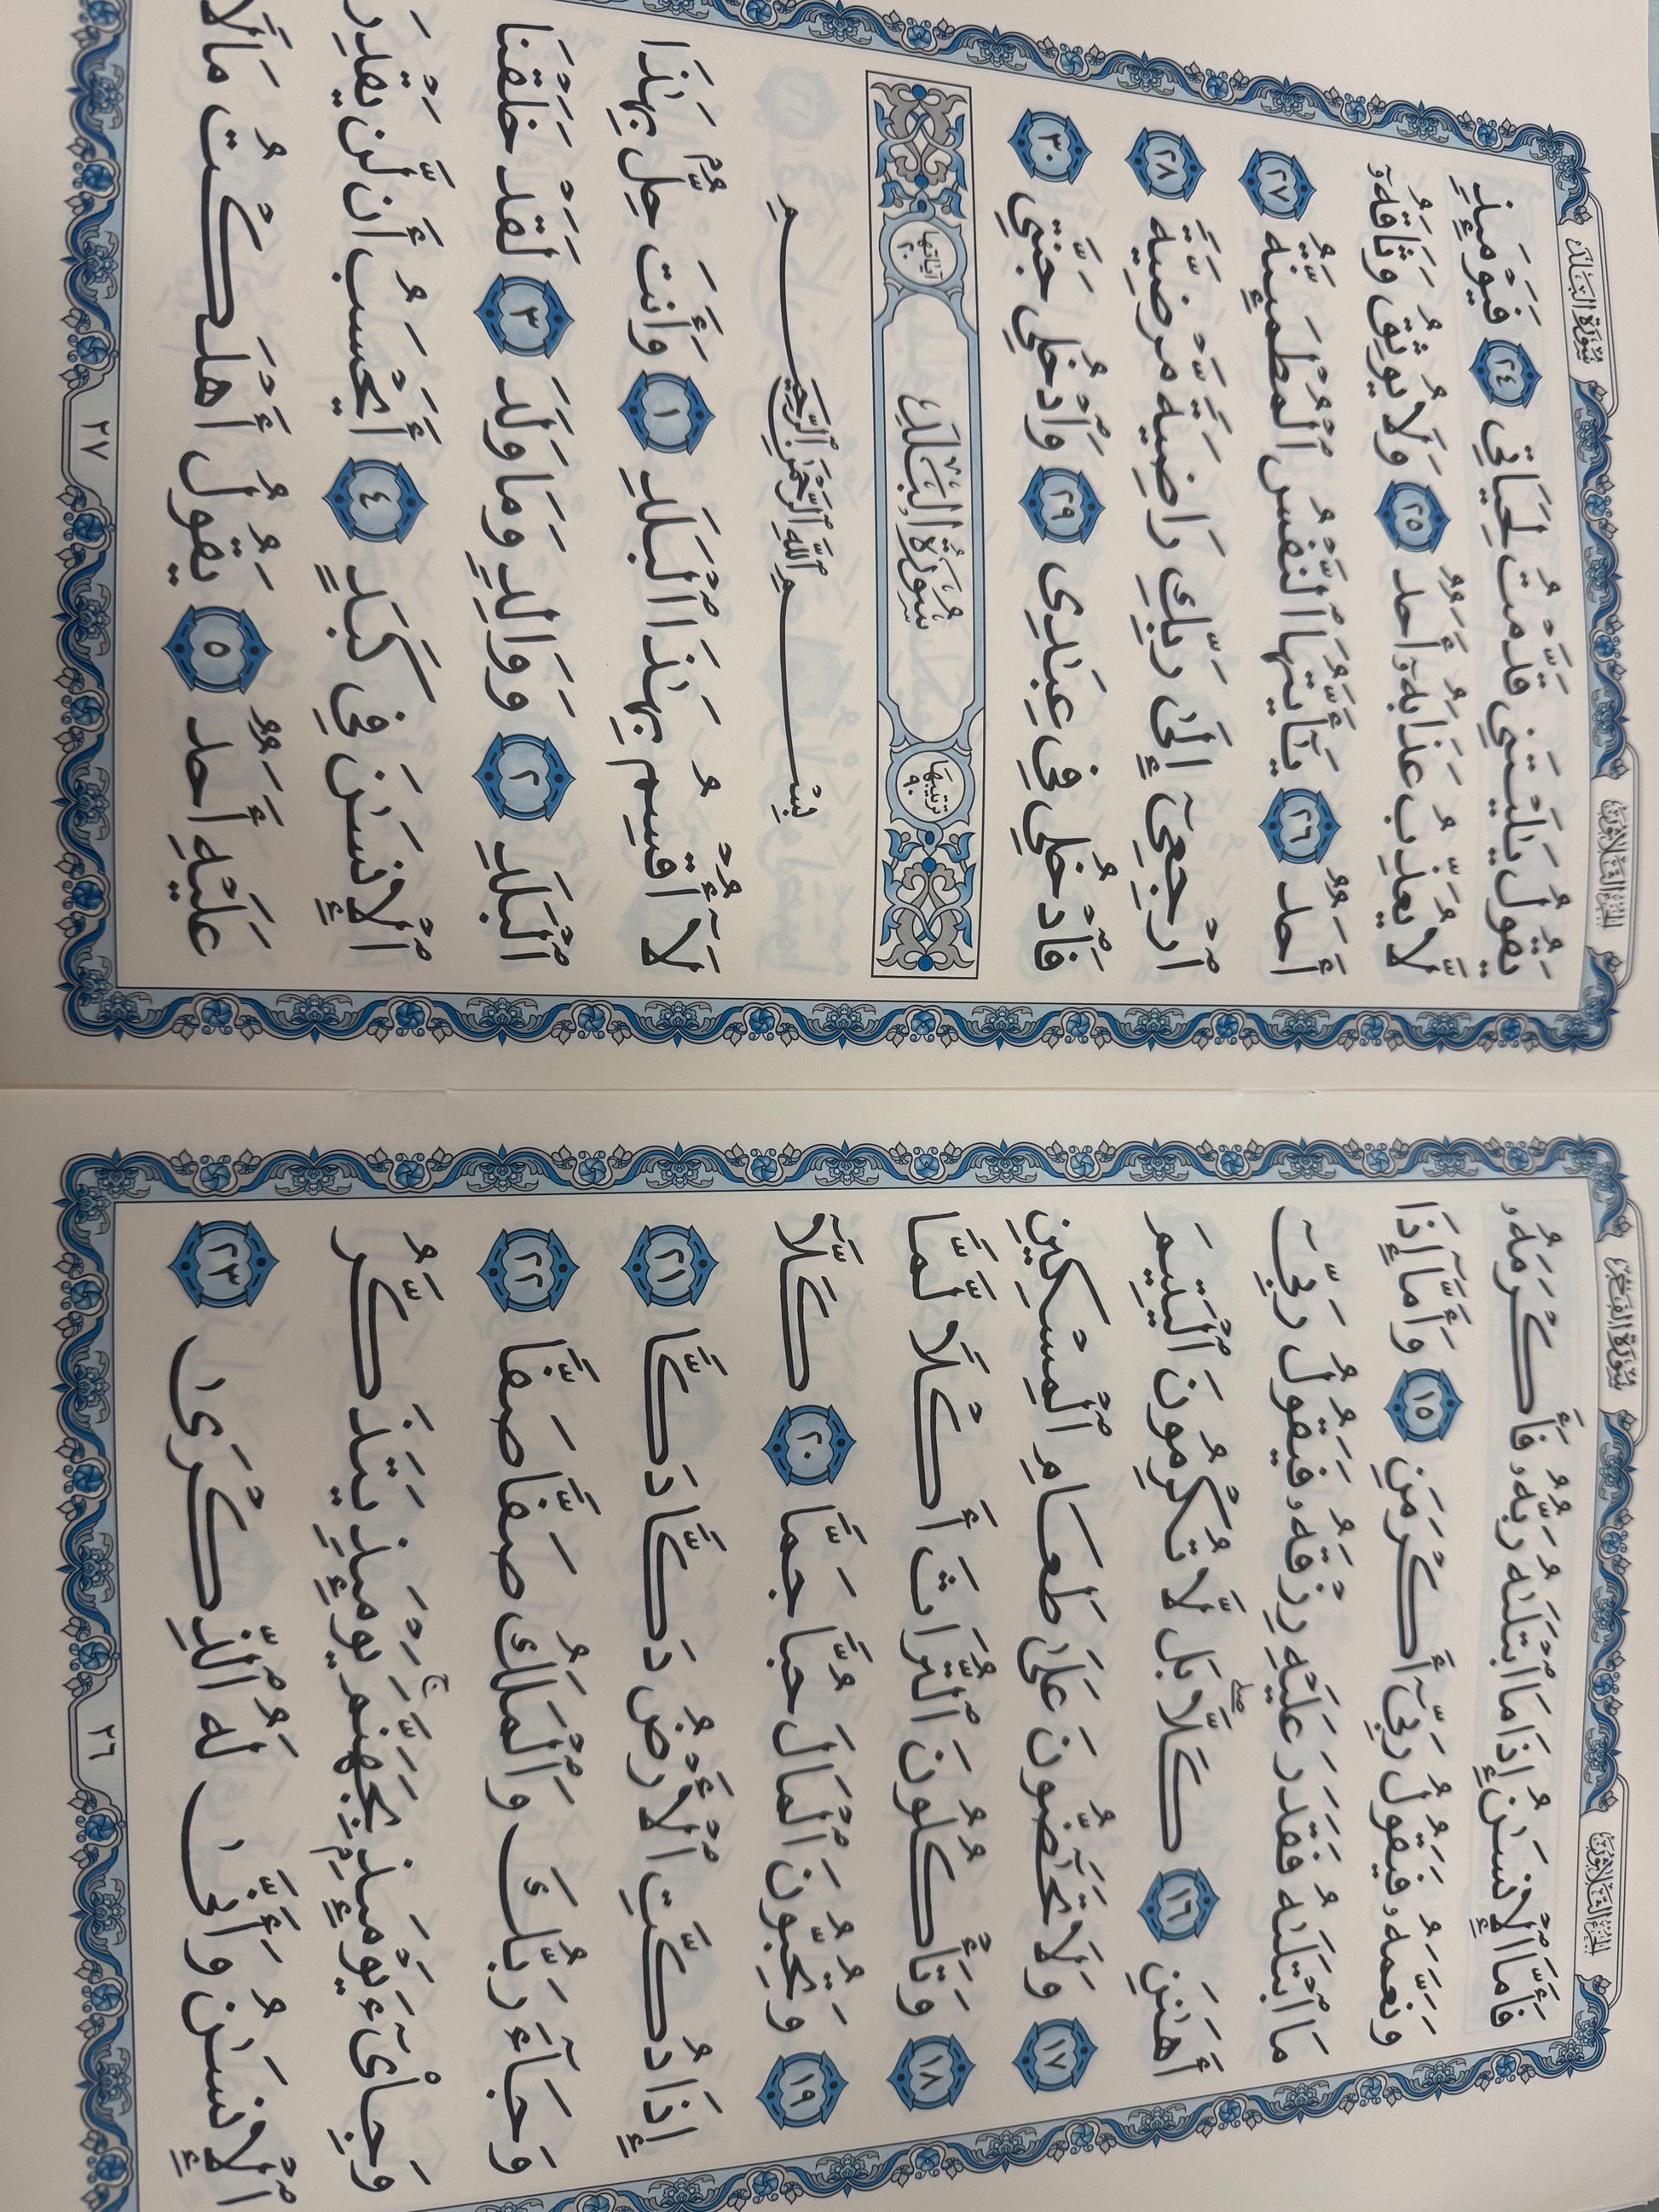 سُورَةُ الفَجْرِ
الجُزْءُ الثَّلَاثُونَ
فَأَمَّا ٱلْإِنسَٰنُ إِذَا مَا ٱبْتَلَىٰهُ رَبُّهُۥ فَأَكْرَمَهُۥ
وَنَعَّمَهُۥ فَيَقُولُ رَبِّىٓ أَكْرَمَنِ ١٥ وَأَمَّآ إِذَا
مَا ٱبْتَلَىٰهُ فَقَدَرَ عَلَيْهِ رِزْقَهُۥ فَيَقُولُ رَبِّىٓ
أَهَٰنَنِ ١٦ كَلَّا ۖ بَل لَّا تُكْرِمُونَ ٱلْيَتِيمَ
١٧ وَلَا تَحَٰٓضُّونَ عَلَىٰ طَعَامِ ٱلْمِسْكِينِ
١٨ وَتَأْكُلُونَ ٱلتُّرَاثَ أَكْلًا لَّمًّا
١٩ وَتُحِبُّونَ ٱلْمَالَ حُبًّا جَمًّا ٢٠ كَلَّآ
إِذَا دُكَّتِ ٱلْأَرْضُ دَكًّا دَكًّا ٢١
وَجَآءَ رَبُّكَ وَٱلْمَلَكُ صَفًّا صَفًّا ٢٢
وَجِا۟ىٓءَ يَوْمَئِذٍۭ بِجَهَنَّمَ ۚ يَوْمَئِذٍ يَتَذَكَّرُ
ٱلْإِنسَٰنُ وَأَنَّىٰ لَهُ ٱلذِّكْرَىٰ ٢٣
٢٦
سُورَةُ البَلَدِ
الجُزْءُ الثَّلَاثُونَ
يَقُولُ يَٰلَيْتَنِى قَدَّمْتُ لِحَيَاتِى ٢٤ فَيَوْمَئِذٍ
لَّا يُعَذِّبُ عَذَابَهُۥٓ أَحَدٌ ٢٥ وَلَا يُوثِقُ وَثَاقَهُۥٓ
أَحَدٌ ٢٦ يَٰٓأَيَّتُهَا ٱلنَّفْسُ ٱلْمُطْمَئِنَّةُ ٢٧
ٱرْجِعِىٓ إِلَىٰ رَبِّكِ رَاضِيَةً مَّرْضِيَّةً ٢٨
فَٱدْخُلِى فِى عِبَٰدِى ٢٩ وَٱدْخُلِى جَنَّتِى ٣٠
تَرْتِيبُهَا ٩٠ سُورَةُ البَلَدِ آيَاتُهَا ٢٠
بِسْمِ ٱللَّهِ ٱلرَّحْمَٰنِ ٱلرَّحِيمِ
لَآ أُقْسِمُ بِهَٰذَا ٱلْبَلَدِ ١ وَأَنتَ حِلٌّۢ بِهَٰذَا
ٱلْبَلَدِ ٢ وَوَالِدٍ وَمَا وَلَدَ ٣ لَقَدْ خَلَقْنَا
ٱلْإِنسَٰنَ فِى كَبَدٍ ٤ أَيَحْسَبُ أَن لَّن يَقْدِرَ
عَلَيْهِ أَحَدٌ ٥ يَقُولُ أَهْلَكْتُ مَالًا
٢٧